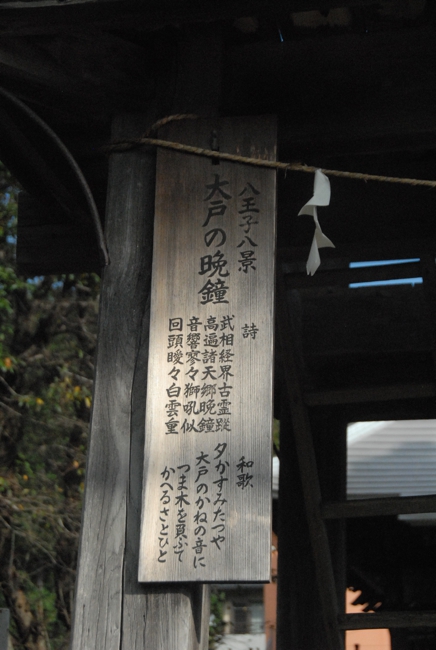 八王子八景
大戸の晩鐘
詩
武相経界古霊蹤
高遍諸天郷晩鐘
音響寥々獅吼似
回頭曖々白雲重
和歌
夕かすみたつや
大戸のかねの音に
つま木を負ふて
かへるさとひと